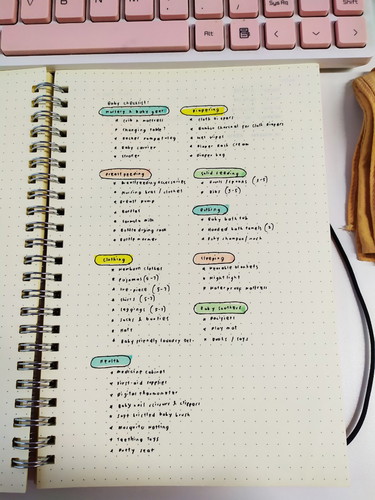 SysRq
Shift
Alt
Baby checklist:
Nursery & baby gears
Crib & mattress
Changing table?
Rocker
Baby carrier
Stroller
Diapering
Cloth diapers
Bamboo charcoal for cloth diapers
Wet wipes
Diaper rash cream
Diaper bag
Breastfeeding
Breastfeeding accessories
Nursing bras / clothes
Breast pump
Bottles
Formula milk
Bottle drying rack
Bottle warmer
Solid feeding
Bowls / spoons (3-5)
Bibs (3-5)
Bathing
Baby bath tub
Hooded bath towels
Baby shampoo / wash
Clothing
Newborn clothes
Pajamas
One-piece (5-7)
Shirts (5-7)
Leggings (5-7)
Socks & booties
Hats
Baby friendly laundry det.
Sleeping
Wearable blankets
Night light
Waterproof mattress
Baby soothers
Pacifiers
Play mat
Books / toys
Health
Medicine cabinet
First-aid supplies
Digital thermometer
Baby nail scissors & clippers
Soft bristled baby brush
Mosquito netting
Teething toys
Potty seat